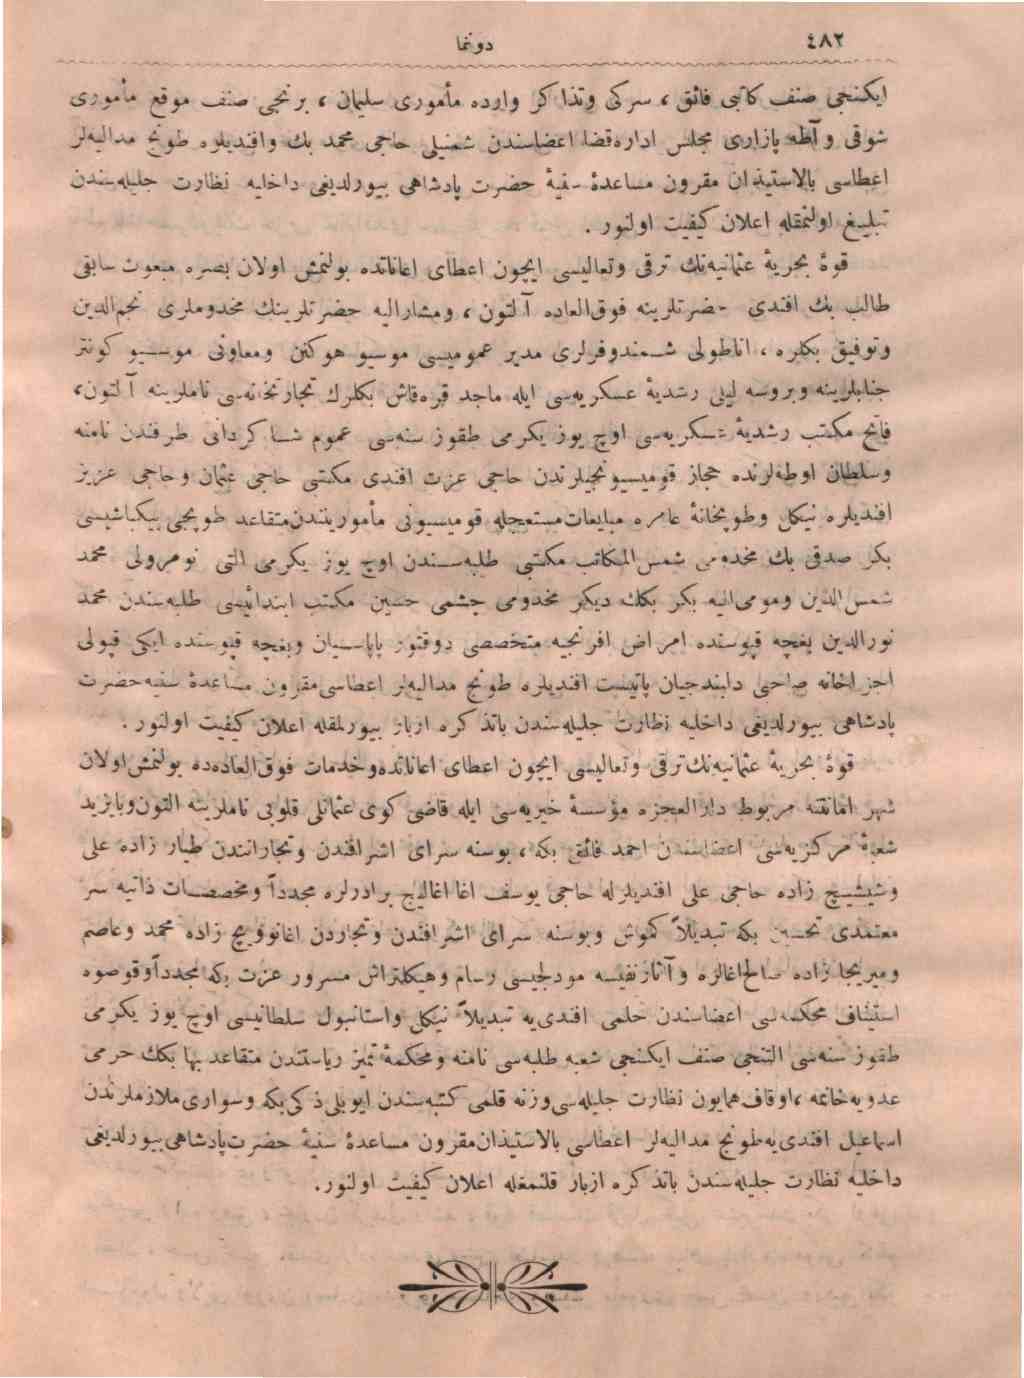 دوننما ٤٨٢
ایكنجی صنف كاتبی فائق ، سركی وتذاكر وارده مأموری سلیمان ، برنجی صنف موقع مأموری
شوقی و آطه پازاری مجلس اداره‌قضا اعضاسندن شمنیلی حاجی محمد بك وافندیلره طونج مدالیه‌لر
اعطاسی بالاستیذان مقرون مساعدۀ سنیۀ حضرت پادشاهی بیورلدیغی داخلیه نظارت جلیله‌سندن
تبلیغ اولنمقله اعلان كیفیت اولنور .
قوۀ بحریۀ عثمانیه‌نك ترقی وتعالیسی ایچون اعطای اعاناتده بولنمش اولان بصره مبعوث سابقی
طالب بك افندی حضرتلرینه فوق‌العاده آلتون ، ومشارالیه حضرتلرینك مخدوملری نجم‌الدین
وتوفیق بكلره ، اناطولی شمندوفرلری مدیر عمومیسی موسیو هوكنن ومعاونی موسیو كونتر
جنابلرینه وبروسه لیلی رشدیۀ عسكریه‌سی ایله ماجد قره‌قاش بكلرك تجارتخانه‌سی ناملرینه آلتون،
فاتح مكتب رشدیۀ عسكریه‌سی اوچ یوز یكرمی طقوز سنه‌سی عموم شاكردانی طرفندن نامنه
وسلطان اوطه‌لرنده حجاز قومیسیونجیلرندن حاجی عزت افندی مكتبی حاجی عثمان وحاجی عزیز
افندیلره نیكل وطوپخانۀ عامره مبایعات‌مستعجله قومیسیونی مأموریندن‌متقاعد طوپجی بیكباشیسی
بكر صدقی بك مخدومی شمس‌المكاتب مكتبی طلبه‌سندن اوچ یوز یكرمی التی نومرولی محمد
شمس‌الدین ومومی‌الیه بكر بكك دیكر مخدومی چشمی حسین مكتب ابتدائیسی طلبه‌سندن محمد
نورالدین بغچه قپوسنده امراض افرنجیه متخصصی دوقتور پاپاسیان وبغچه قپوسنده ایكی قپولی
اجزاخانه صاحبی دلبندجیان پاتیست افندیلره طونج مدالیه‌لر اعطاسی‌مقرون مساعدۀ سنیه‌حضرت
پادشاهی بیورلدیغی داخلیه نظارت جلیله‌سندن باتذكره ازبار بیورلمقله اعلان كیفیت اولنور .
قوۀ بحریۀ عثمانیه‌نك ترقی وتعالیسی ایچون اعطای اعاناتده‌وخدمات فوق‌العاده‌ده بولنمش‌اولان
شهر امانتنه مربوط دارالعجزه مؤسسۀ خیریه‌سی ایله قاضی كوی عثمانلی قلوبی ناملرینه التون‌وبایزید
شعبۀ مركزیه‌سی اعضاسندن احمد فائق بكه ، بوسنه سرای اشرافندن وتجارانندن طیار زاده علی
وشیشیچ زاده حاجی علی افندیلرله حاجی یوسف اغا اغالیج برادرلره مجدداً ومخصصات ذاتیه سر
معتمدی تحسین بكه تبدیلاً كموش وبوسنه سرای اشرافندن وتجاردن اغانوویچ زاده محمد وعاصم
ومیریجا زاده صالح‌اغالره وآثارنفیسه مودلجیسی رسام وهیكلتراش مسرور عزت بكه مجدداًوقوصوه
استیناف محكمه‌سی اعضاسندن حلمی افندی‌یه تبدیلاً نیكل واستانبول سلطانیسی اوچ یوز یكرمی
طقوز سنه‌سی التنجی صنف ایكنجی شعبه طلبه‌سی نامنه ومحكمۀ تمیز ریاستندن متقاعد بها بكك حرمی
عدویه‌خانمه ،اوقاف‌همایون نظارت جلیله‌سی‌وزنه قلمی كتبه‌سندن ایوبلی‌ذكی‌بكه وسواری‌ملازملرندن
اسماعیل افندی‌یه‌طونج مدالیه‌لر اعطاسی بالاستیذان‌مقرون مساعدۀ سنیۀ حضرت‌پادشاهی‌بیورلدیغی
داخلیه نظارت جلیله‌سندن باتذكره ازبار قلنمغله اعلان كیفیت اولنور.